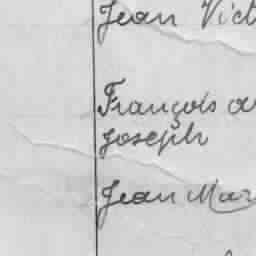 Jean Vict
François
Joseph
Jean Mar